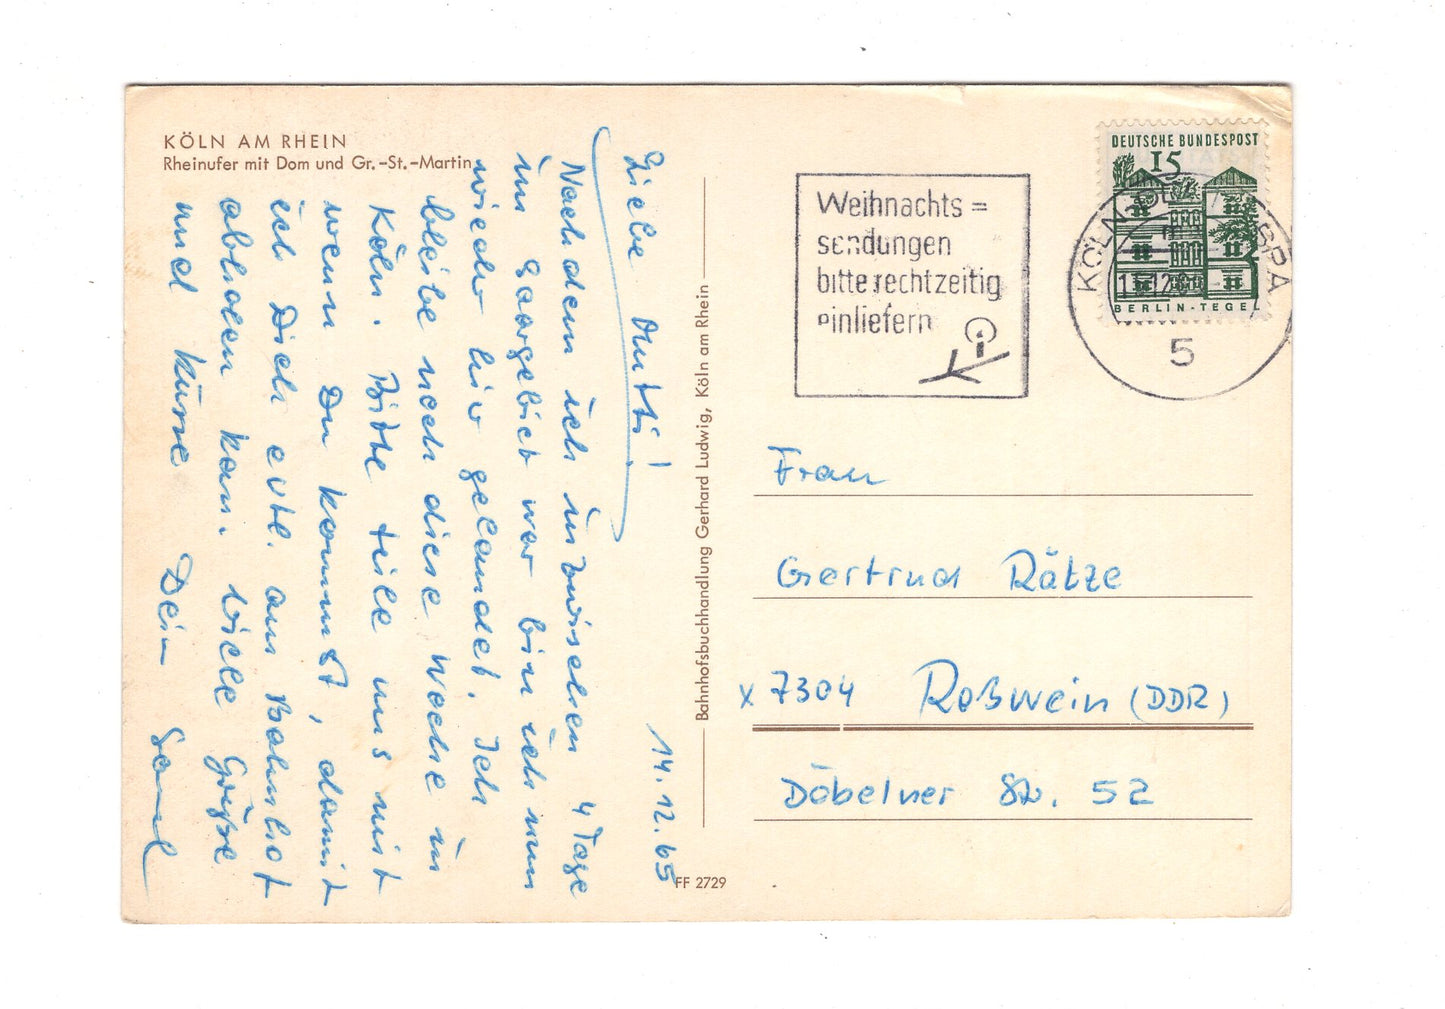 KÖLN AM RHEIN
Rheinufer mit Dom und Gr.-St.-Martin
14.12.65
Liebe Mutti!
Nachdem ich inzwischen 4 Tage
im Saargebiet war bin ich nun
wieder hir gelandet. Ich
bleibe noch diese Woche in
Köln. Bitte teile uns mit
wenn Du kommst, damit
ich Dich evtl. am Bahnhof
abholen kann. Viele Grüße
und Küsse Dein
Bahnhofsbuchhandlung Gerhard Ludwig, Köln am Rhein
FF 2729
Weihnachts=
sendungen
bitte rechtzeitig
einliefern
DEUTSCHE BUNDESPOST
15
BERLIN-TEGEL
KÖLN
5
Frau
Gertrud Rätze
x 7304 Roßwein (DDR)
Döbelner Str. 52